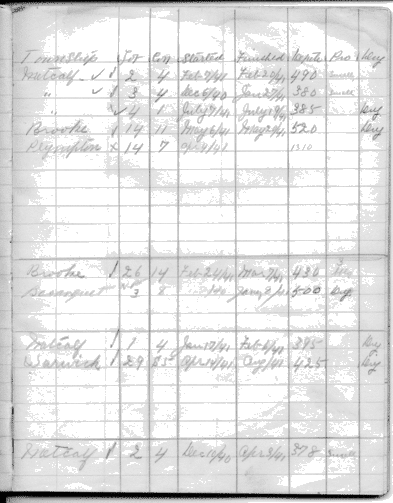 Township Lot Con Started Finished Depth Pro Dry
Metcalf ✓ 2 4 Feb 7/41 Feb 20/41 490 small
" ✓ 3 4 Dec 6/40 Jan 27/41 380 small
" ✓ 4 1 July 9/41 July 19/41 385 Dry
Brooke 14 11 May 6/41 May 29/41 520 Dry
Plympton x 14 7 1310
Brooke 26 14 Feb 24/41 Mar 7/41 430
3 8 500 Dry
Metcalf 1 4 Jan 17/41 Feb 6/41 395 Dry
Warwick 29 Apr 14/41 Aug /41 425 Dry
Metcalf 2 4 Dec 12/40 Apr 3/41 378 small